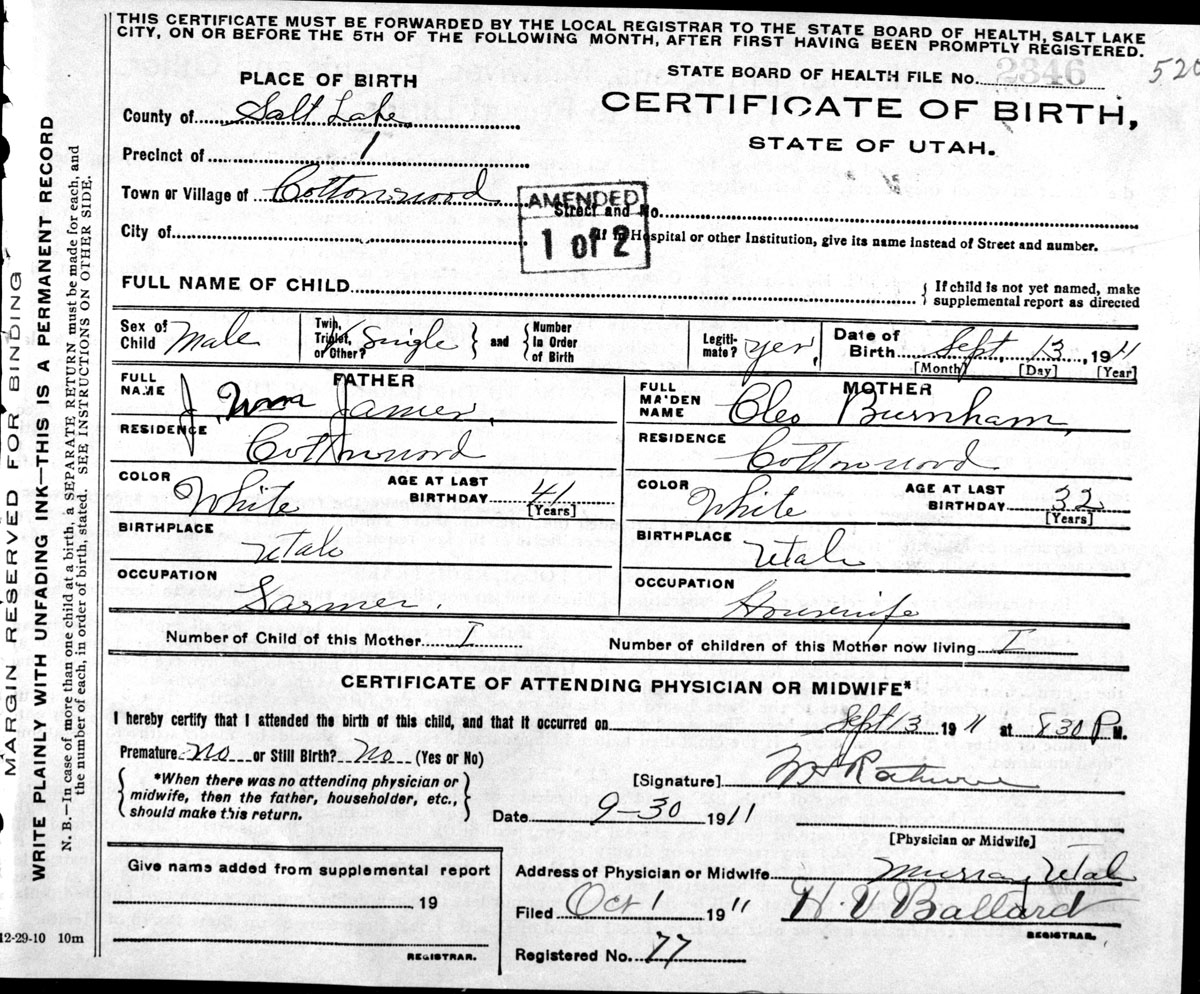 THIS CERTIFICATE MUST BE FORWARDED BY THE LOCAL REGISTRAR TO THE STATE BOARD OF HEALTH, SALT LAKE
CITY, ON OR BEFORE THE 5TH OF THE FOLLOWING MONTH, AFTER FIRST HAVING BEEN PROMPTLY REGISTERED.
PLACE OF BIRTH
STATE BOARD OF HEALTH FILE No. 2346
520
County of Salt Lake
CERTIFICATE OF BIRTH,
STATE OF UTAH.
Precinct of 1
Town or Village of Cottonwood
AMENDED
1 of 2
Street and No.
City of
If in Hospital or other Institution, give its name instead of Street and number.
FULL NAME OF CHILD
If child is not yet named, make
supplemental report as directed
Sex of
Child Male
Twin,
Triplet,
or Other? Single
and
Number
in Order
of Birth
Legiti-
mate? yes
Date of
Birth Sept, 13, 1911
[Month] [Day] [Year]
FATHER
FULL
NAME J. Wm James,
MOTHER
FULL
MAIDEN
NAME Cleo Burnham,
RESIDENCE Cottonwood
RESIDENCE Cottonwood
COLOR White
AGE AT LAST
BIRTHDAY 41
[Years]
COLOR White
AGE AT LAST
BIRTHDAY 32
[Years]
BIRTHPLACE Utah
BIRTHPLACE Utah
OCCUPATION Farmer.
OCCUPATION Housewife
Number of Child of this Mother I
Number of children of this Mother now living I
CERTIFICATE OF ATTENDING PHYSICIAN OR MIDWIFE*
I hereby certify that I attended the birth of this child, and that it occurred on Sept 13 1911 at 8 30 P. M.
Premature no or Still Birth? No (Yes or No)
*When there was no attending physician or
midwife, then the father, householder, etc.,
should make this return.
[Signature]
Date 9-30 1911
[Physician or Midwife]
Give name added from supplemental report
19
REGISTRAR.
Address of Physician or Midwife Murray Utah
Filed Oct 1 1911 H V Ballard
REGISTRAR.
Registered No. 77
12-29-10 10m
MARGIN RESERVED FOR BINDING
WRITE PLAINLY WITH UNFADING INK—THIS IS A PERMANENT RECORD
N. B.—In case of more than one child at a birth, a SEPARATE RETURN must be made for each, and
the number of each, in order of birth, stated. SEE INSTRUCTIONS ON OTHER SIDE.